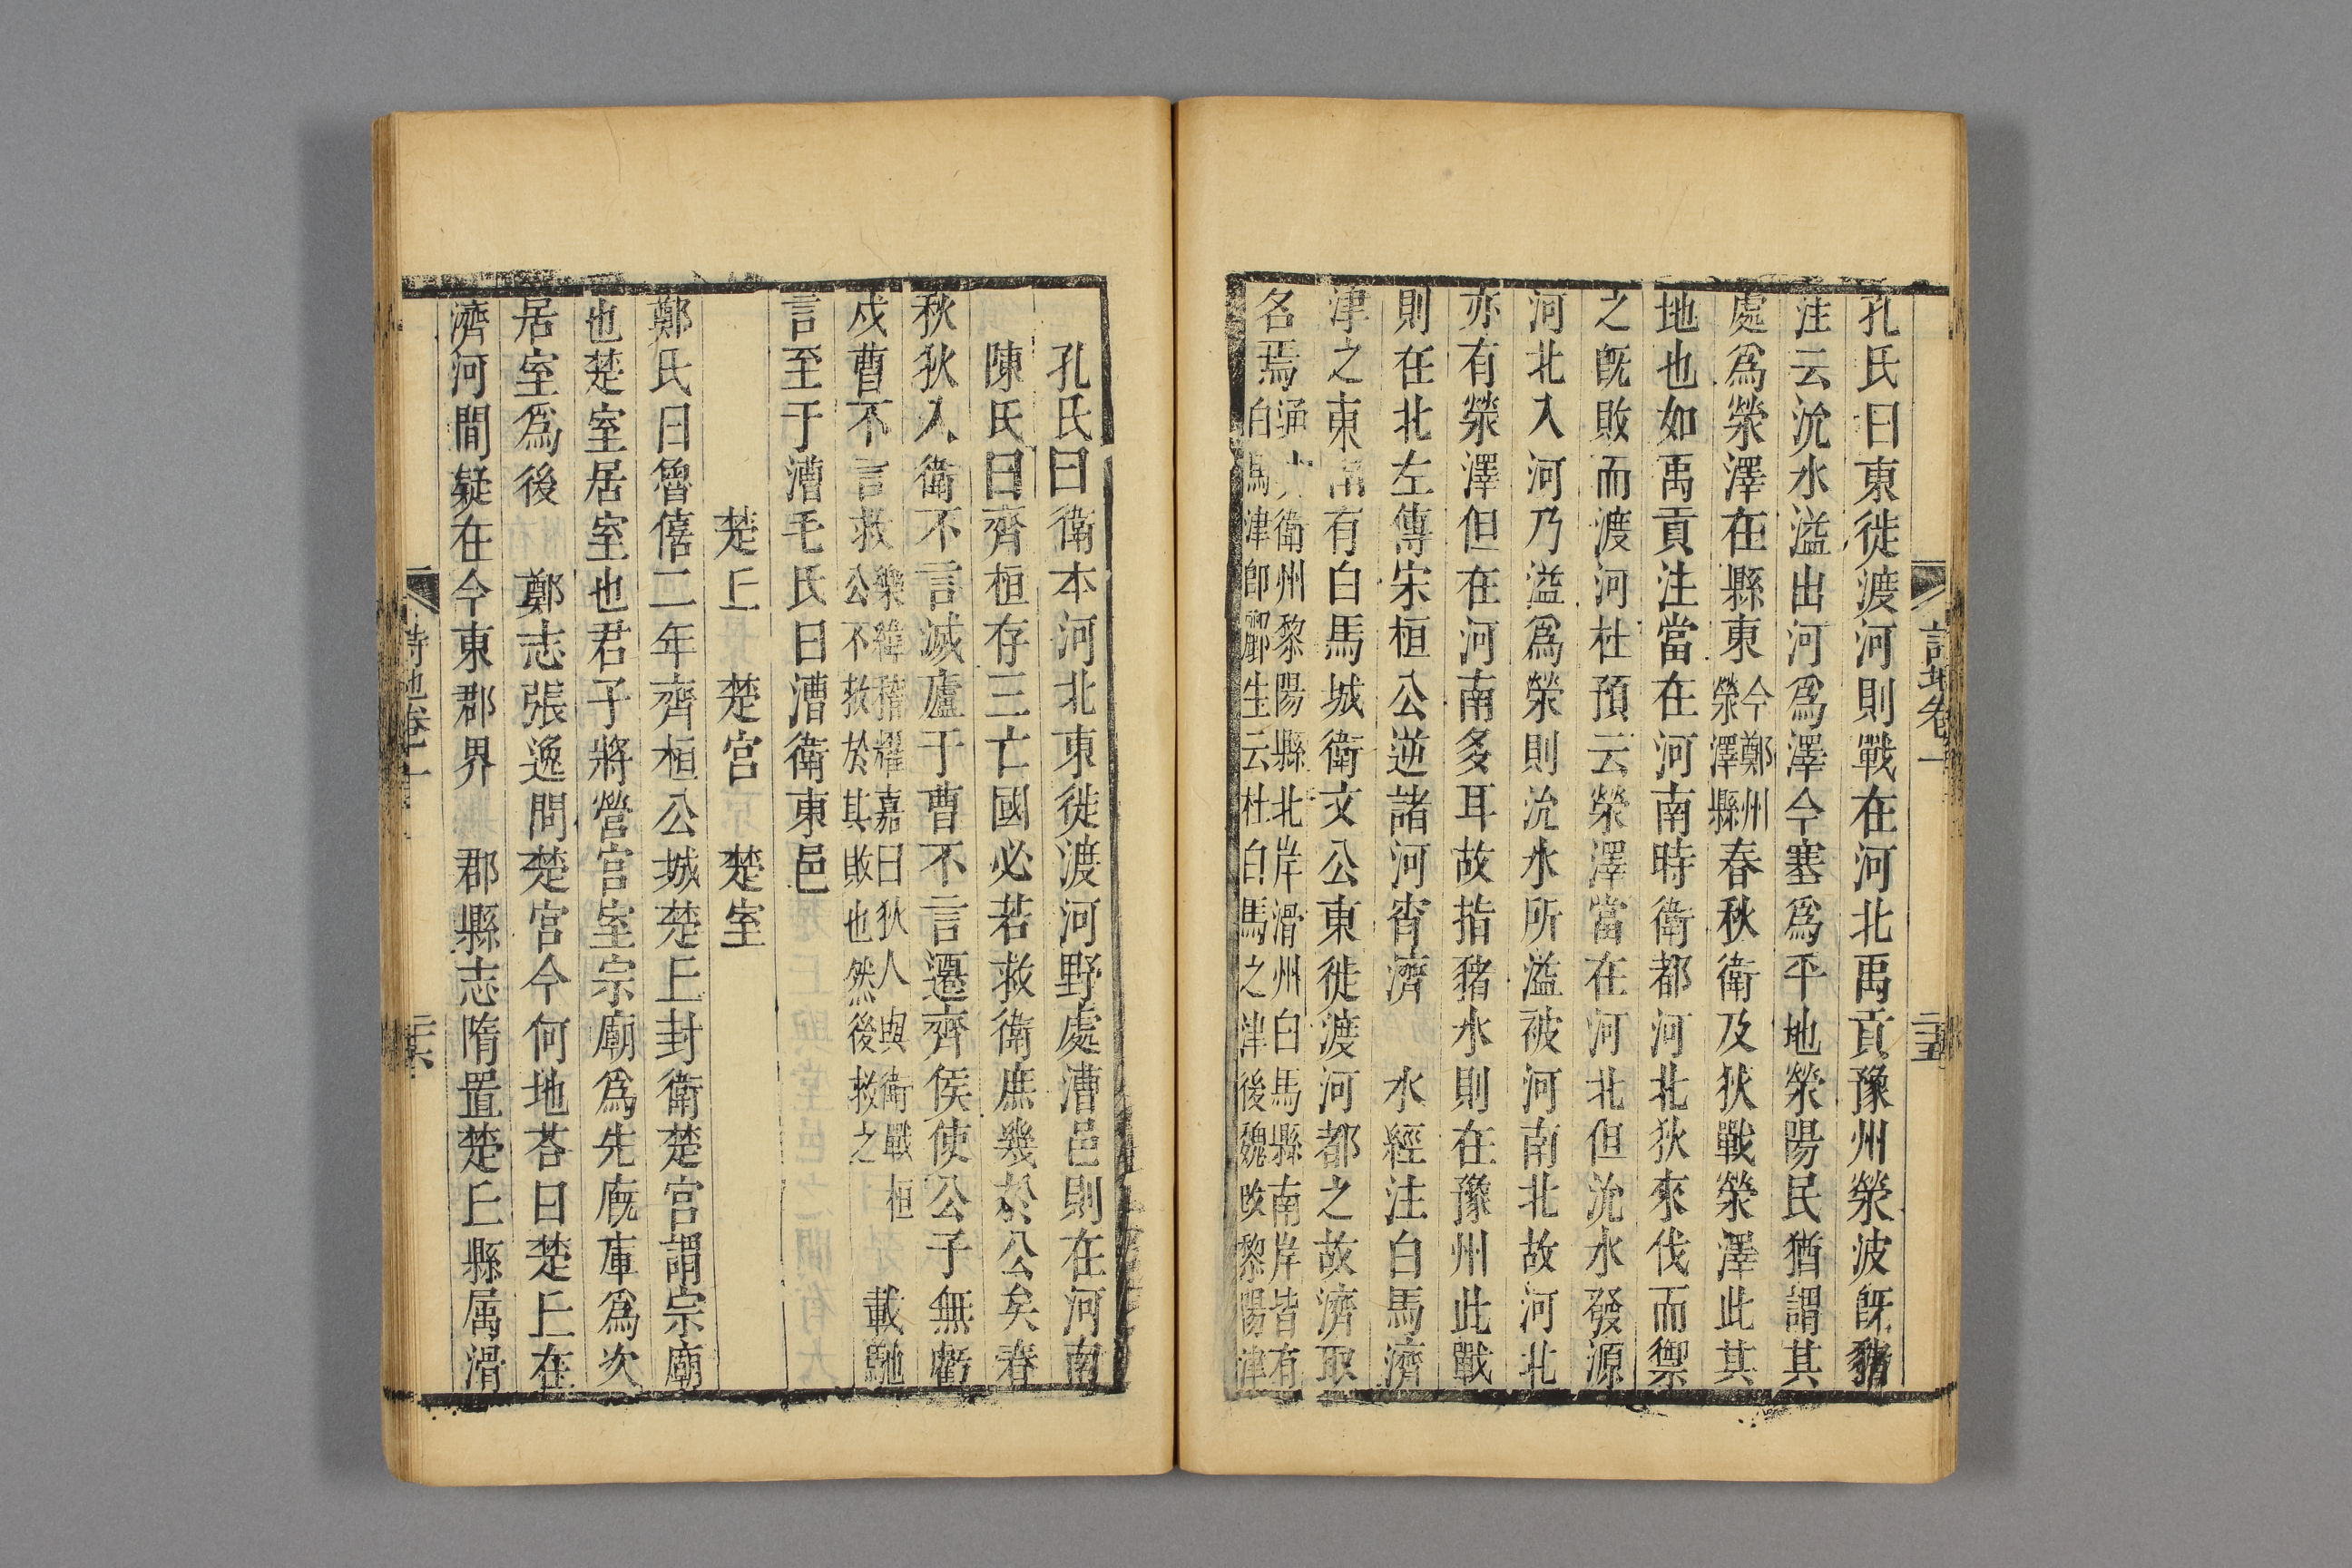 孔氏曰東徙渡河則戰在河北禹貢豫州滎波旣豬
注云沇水溢出河爲澤今塞爲平地滎陽民猶謂其
處爲滎澤在縣東今鄭州滎澤縣春秋衛及狄戰滎澤此其
地也如禹貢注當在河南時衛都河北狄來伐而禦
之旣敗而渡河杜預云滎澤當在河北但沇水發源
河北入河乃溢爲滎則沇水所溢被河南北故河北
亦有滎澤但在河南多耳故指豬水則在豫州此戰
則在北左傳宋桓公逆諸河宵濟　水經注白馬濟
津之東南有白馬城衛文公東徙渡河都之故濟取
名焉通典衛州黎陽縣北岸滑州白馬縣南岸皆有白馬津卽酈生云杜白馬之津後魏改黎陽津
孔氏曰衛本河北東徙渡河野處漕邑則在河南
陳氏曰齊桓存三亡國必若救衛庶幾於公矣春
秋狄入衛不言滅廬于曹不言遷齊侯使公子無虧
戍曹不言救樂緯稽耀嘉曰狄人與衛戰桓公不救於其敗也然後救之　載馳
言至于漕毛氏曰漕衛東邑
楚丘　楚宮　楚室
鄭氏曰魯僖二年齊桓公城楚丘封衛楚宮謂宗廟
也楚室居室也君子將營宮室宗廟爲先廐庫爲次
居室爲後　鄭志張逸問楚宮今何地荅曰楚丘在
濟河間疑在今東郡界　郡縣志隋置楚丘縣属滑
詩地卷一
二十五
詩地卷一
二十六